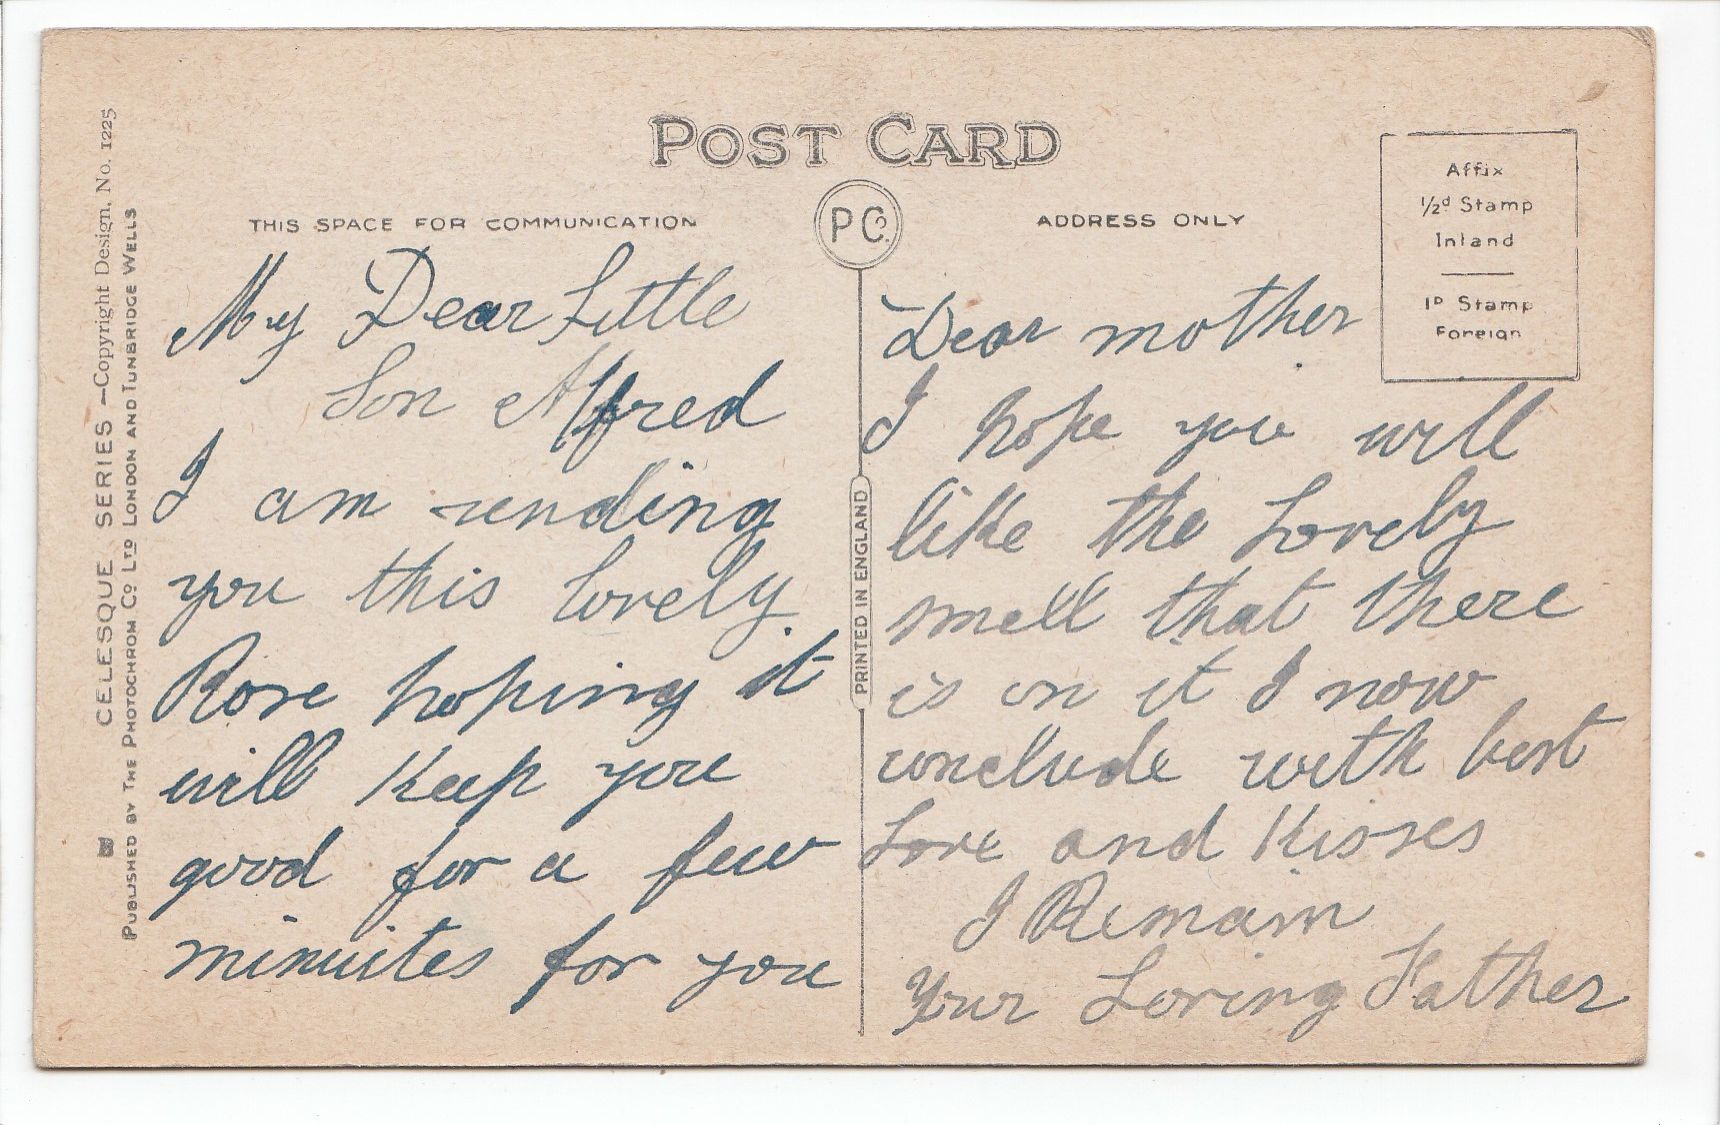 POST CARD
THIS SPACE FOR COMMUNICATION
P Co.
ADDRESS ONLY
Affix
½d Stamp
Inland
1D Stamp
Foreign
CELESQUE SERIES —Copyright Design, No. 1225
PUBLISHED BY THE PHOTOCHROM Co LTD LONDON AND TUNBRIDGE WELLS
PRINTED IN ENGLAND
My Dear Little
Son Alfred
I am sending
you this lovely
Rose hoping it
will Keep you
good for a few
minuites for you
Dear mother
I hope you will
like the Lovely
smell that there
is on it I now
conclude with best
Love and Kisses
I Remain
Your Loving Father